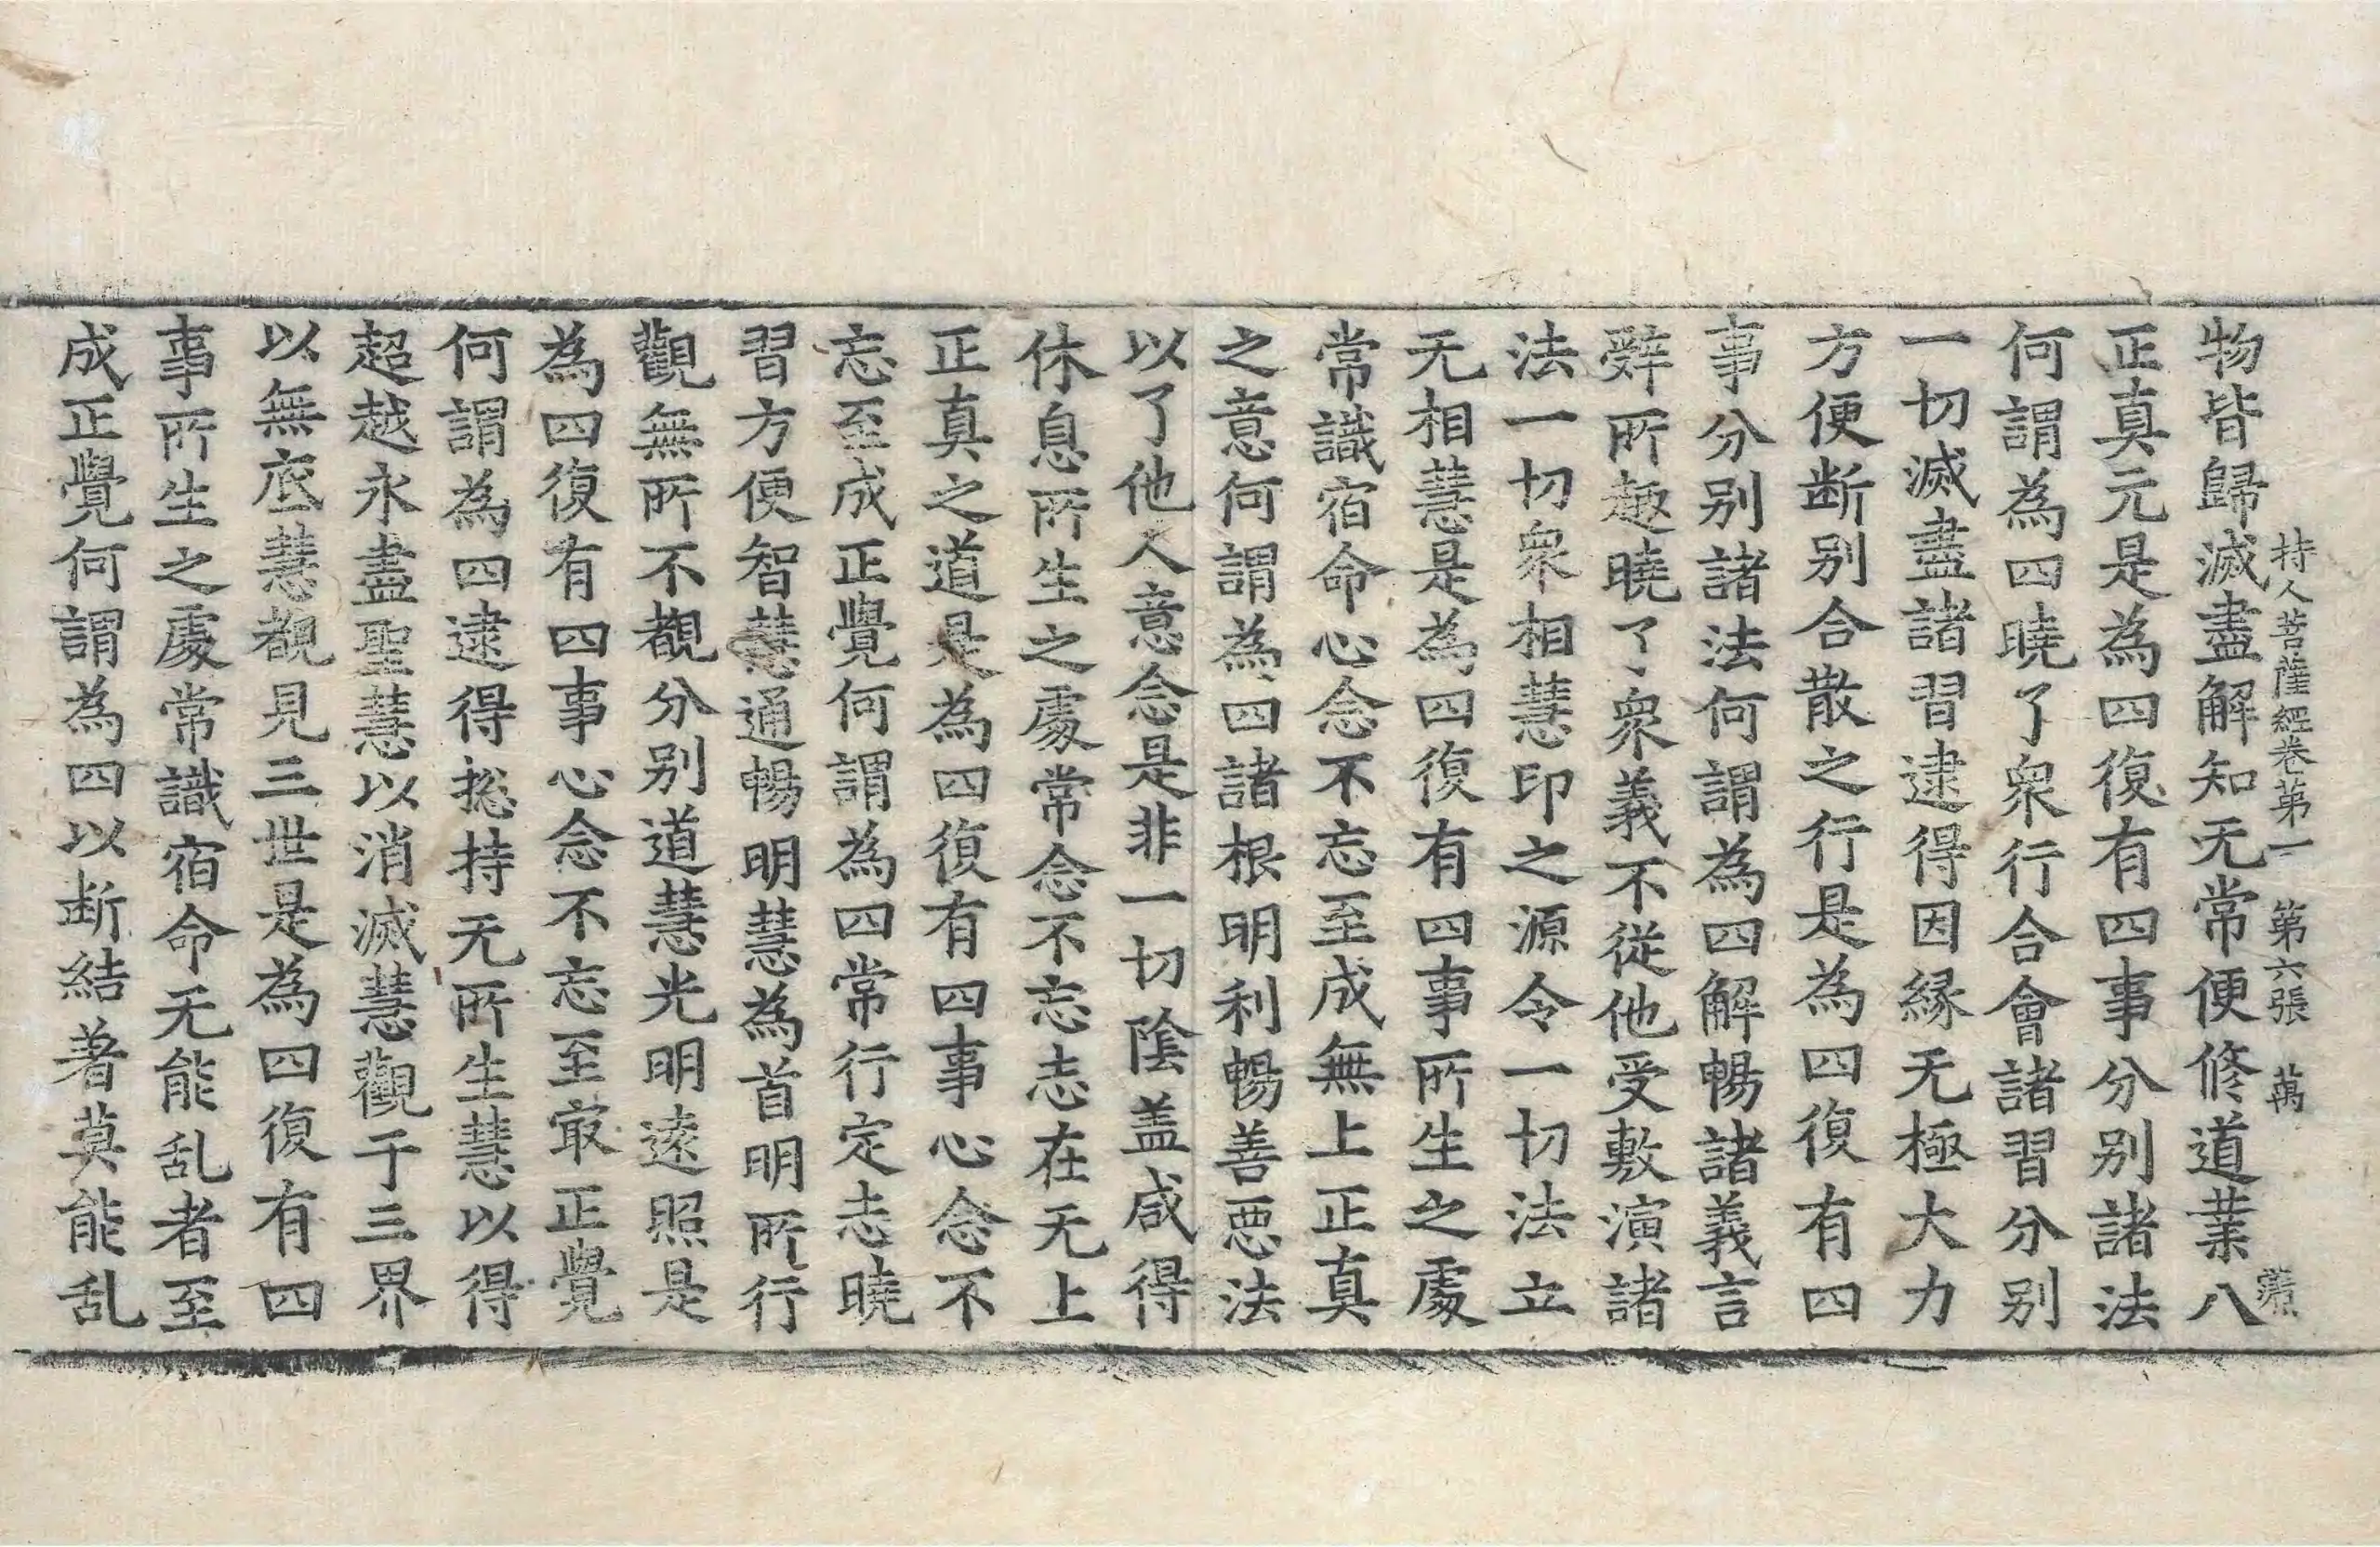 持人菩薩經卷苐一　第六張　萬
物皆歸滅盡解知无常便修道業八
正真元是為四復有四事分别諸法
何謂為四曉了衆行合會諸習分别
一切滅盡諸習逮得因緣无極大力
方便断别合散之行是為四復有四
事分别諸法何謂為四解暢諸義言
辭所趣曉了衆義不從他受敷演諸
法一切衆相慧印之源令一切法立
无相慧是為四復有四事所生之處
常識宿命心念不忘至成無上正真
之意何謂為四諸根明利暢善惡法
以了他人意念是非一切陰盖咸得
休息所生之處常念不忘志在无上
正真之道是為四復有四事心念不
忘至成正覺何謂為四常行定志曉
習方便智慧通暢明慧為首明所行
觀無所不覩分别道慧光明遠照是
為四復有四事心念不忘至㝡正覺
何謂為四逮得捴持无所生慧以得
超越永盡聖慧以消滅慧觀于三界
以無底慧覩見三世是為四復有四
事所生之處常識宿命无能乱者至
成正覺何謂為四以断結著莫能乱